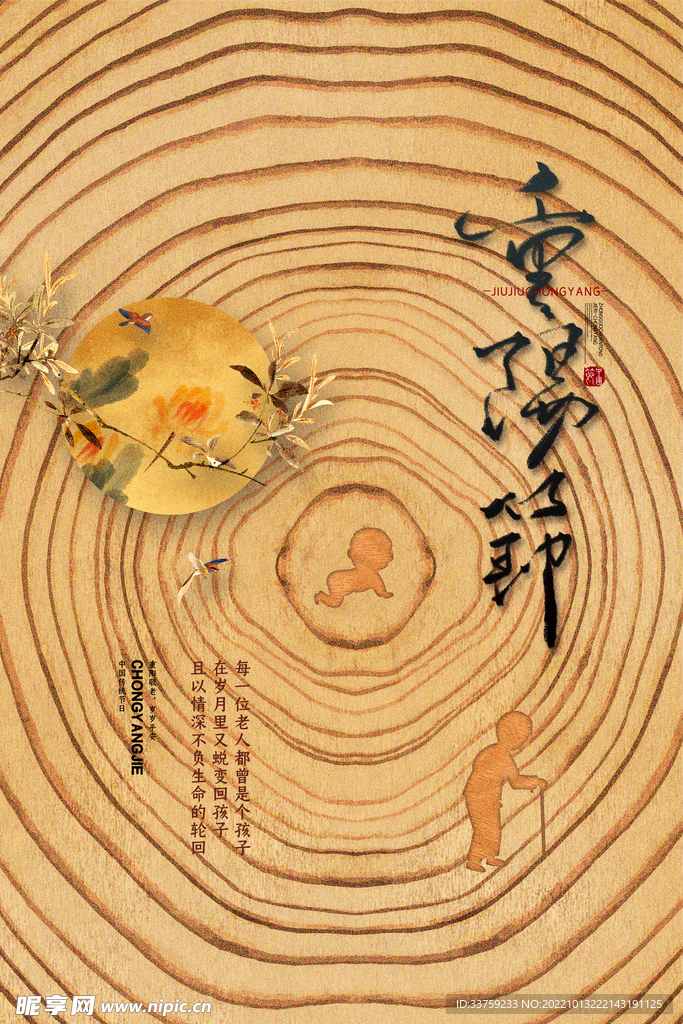 重陽節
JIUJIUCHONGYANG
每一位老人都曾是个孩子
在岁月里又蜕变回孩子
且以情深不负生命的轮回
重阳敬老，岁岁平安
CHONGYANGJIE
中国传统节日
昵享网 www.nipic.cn
ID:33759233 NO:20221013222143191125